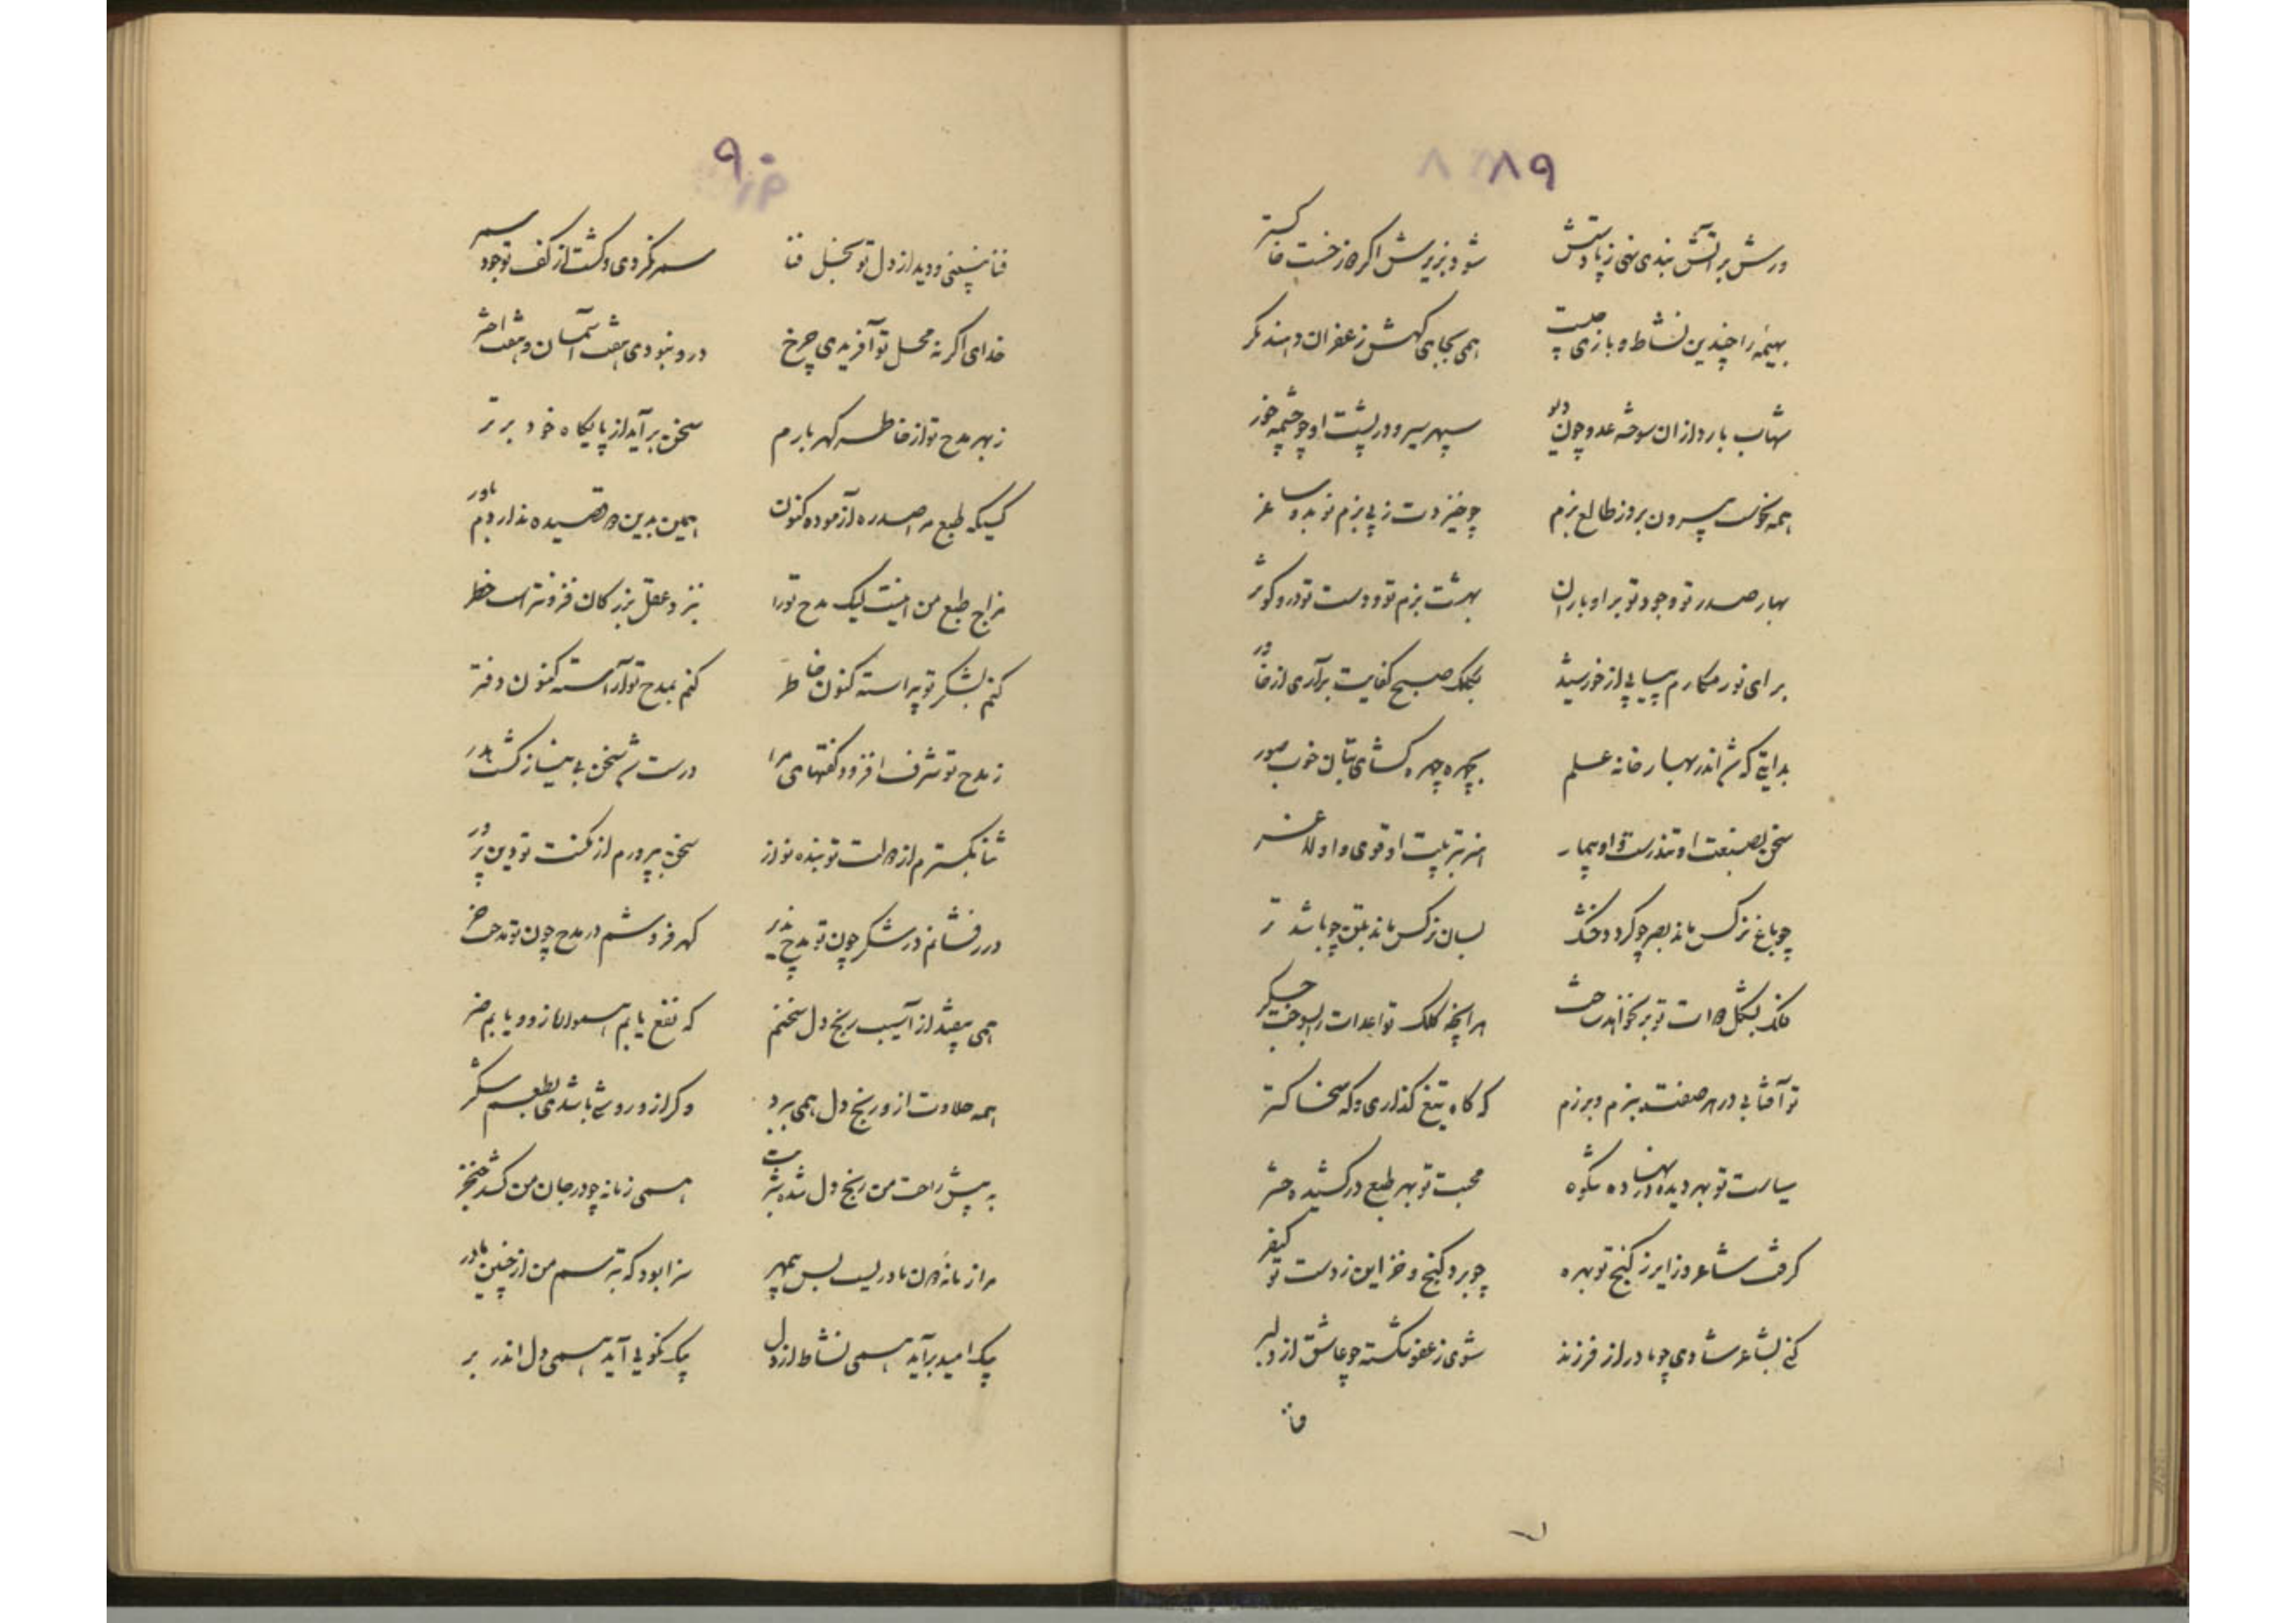 ۸۹
ورش بر آتش بندی نهی ز پاداش شود بزیرش اگر از خشت خاکستر
بهیمه را چندین نشاط و بازی چیست همی بجای کهش زعفران دهند مگر
شهاب بارد از ان سوخته عدو چون دیو سپهر سیر و در پشت او چو چشمه خور
همه نحوست بیرون برو ز طالع بزم چو خیزدت ز پی بزم نوبه ساغر
بهار صدر تو وجود تو بر او باران بهشت بزم تو و دست تو در و کوثر
برای نور مکارم پیاپی از خورشید بکلک صبح کفایت برآری از خاور
بدایتی که اندر بهار خانه علم بچهره چهره کشای بتان خوب صور
سخن بصنعت او تندرست و او بیمار هنر بتربیت او قوی و او لاغر
چو باغ نرکس ماند بصر چو کردد خشک بسان نرکس ماند بتن چو باشد تر
فلک بشکل تو بر نخواند حشر هر آنچه کلک تو اعدات را بسوخت جگر
تو آفتابی در هر صفت ببزم و برزم که گاه تیغ گذاری و که سخا گستر
سیاست تو بهر دیده در نهاده شکوه محبت تو بهر طبع در کشیده حشر
گرفت شاعر و زایر ز گنج تو بهره چو برد گنج و خزاین ز دست تو کیفر
کنی بشاعر شادی چو مادر از فرزند شوی ز عفو شکسته چو عاشق از دلبر
فنا
۹۰
فنا نشینی و دید از دل تو بخل فنا سمر نکردی و گشت از کف تو جود سمر
خدای اگر نه محل تو آفریدی چرخ در و نبودی هفت آسمان و هفت اختر
ز بهر مدح تو از خاطر گهر بارم سخن برآید از پایگاه خود برتر
کسیکه طبع مرا صد ره آزموده کنون همین بدین قصیده ندارد م باور
مزاج طبع من اینست لیک مدح تو را بنزد عقل بزرگان فزونتر است خطر
کنم بشکر تو پیراسته کنون خاطر کنم بمدح تو آراسته کنون دفتر
ز مدح تو شرف افزود گفتهای مرا درست شد سخن بی نیاز گشت بدر
ثنا بگسترم از تو بنده نواز سخن بپرورم از مکنت تو دین پرور
درر فشانم در شکر چون تو مدح پذیر گهر فروشم در مدح چون تو مدحت خر
همی بیفتد از آسیب رنج دل سخنم که نفع یابم هموار از و و یابم ضر
همه حلاوت از و رنج دل همی ببرد و گر از و روشی باشدی بطعم شکر
به پیش راحت من رنج دل شده سپر همی زمانه چو در جان من کشد خنجر
مرا زمانه مادریست بس بیمهر سزا بود که بترسم من از چنین مادر
بیک امید برآید همی نشاط از دل بیک نکویی آید همی دل اندر بر